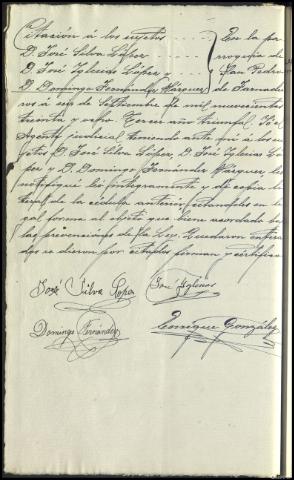 Citación á los sujetos
D. José Silva López
D. José Iglecias López y
D. Domingo Fernández Márquez
En la pa-
rroquia de
San Pedro
de Sarnado
ó á seis de Setiembre de mil novecientos
treinta y ocho Tercer año triunfal Yo el
Agente judicial teniendo ante mi á los su-
jetos D. José Silva López, D. José Iglecias Ló-
pez y D. Domingo Fernández Márquez les
notifiqué leí íntegramente y dí copia li-
teral de la cédula anterior citandolos en le-
gal forma al objeto que viene acordado ba-
jo las prevenciones de la Ley. Quedaron entera-
dos se dieron por citados firman y certifico
José Silva López
José Iglesias
Domingo Fernández
Enrique González